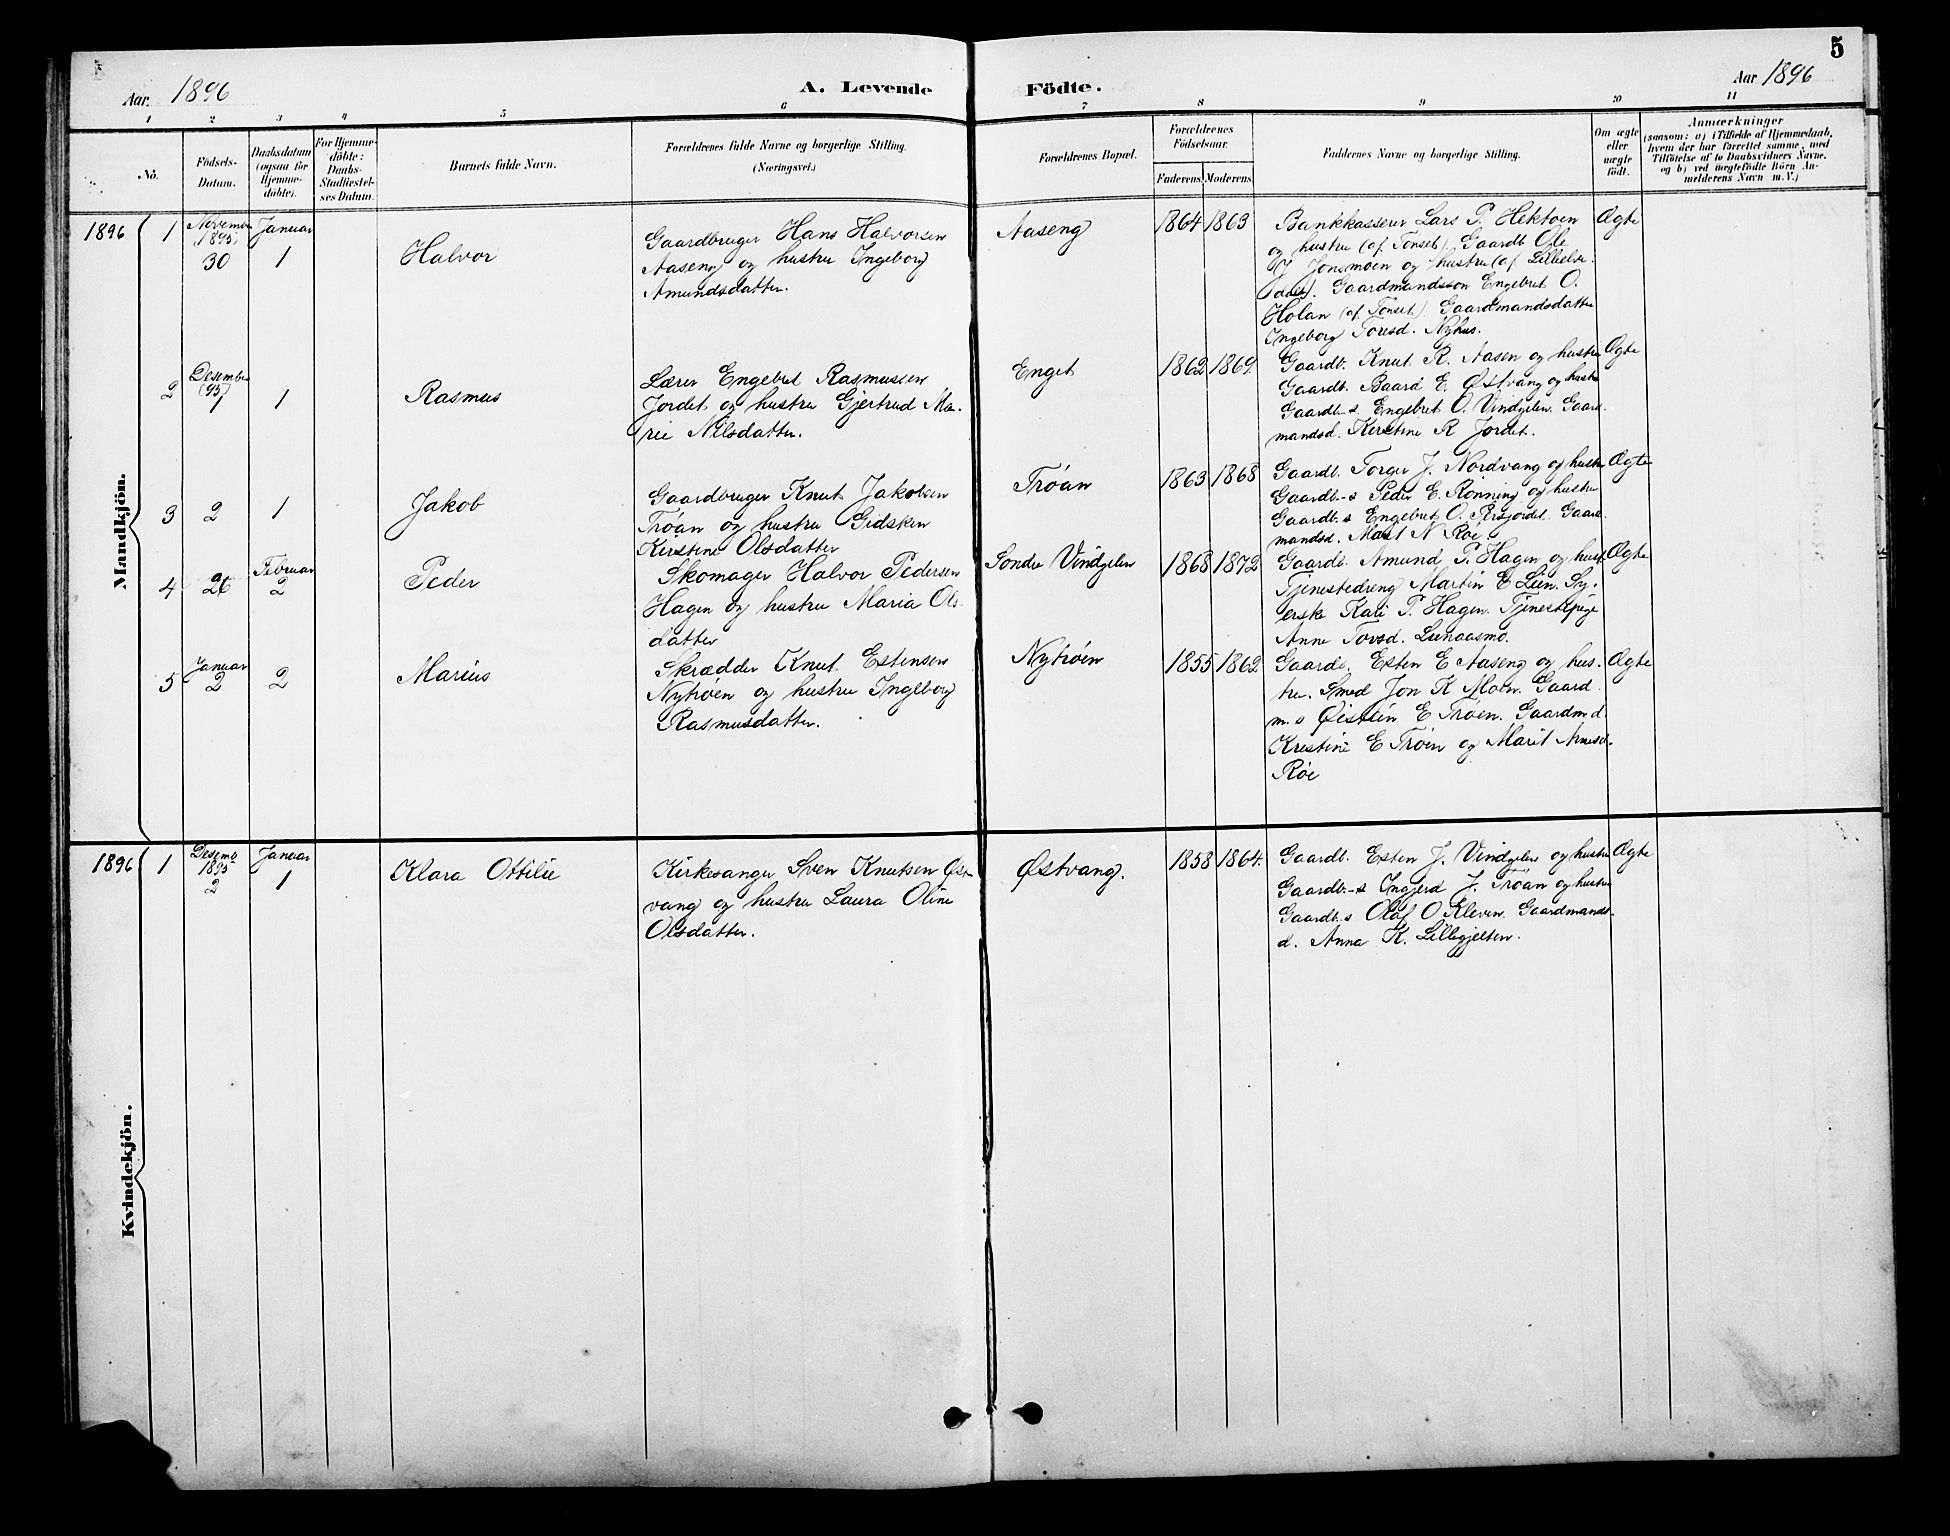 5
Aar. 1896
A. Levende
Födte.
Aar 1896
1 2 3 4 5 6 7 8 9 10 11
No.
Födsels-
Datum.
Daabsdatum
(ogsaa for
Hjemme-
döbte).
For Hjemme-
döbte:
Daabs-
Stadfæstel-
ses Datum.
Barnets fulde Navn.
Forældrenes fulde Navne og borgerlige Stilling.
(Næringsvei.)
Forældrenes Bopæl.
Forældrenes
Födselsaar.
Faderens.
Moderens.
Faddernes Navne og borgerlige Stilling.
Om ægte
eller
uægte
födt.
Anmærkninger
(saasom: a) i Tilfælde af Hjemmedaab,
hvem der har forrettet samme, med
Tilföielse af to Daabsvidners Navne,
og b) ved uægtefödte Börn An-
melderens Navn m. V.)
Mandkjön.
1896
1
November
(1895)
30
Januar
1
Halvor
Gaardbruger Hans Halvorsen
Aaseng og hustru Ingeborg
Amundsdatter.
Aaseng
1864
1863
Bankkasserer Lars P. Hektoen
og hustru (af Tønset). Gaardb. Ole
J. Jonsmoen og hustru (af Lilleelve-
dalen). Gaardmandssøn Engebret O.
Holan (af Tønset). Gaardmandsdatter
Ingeborg Toresd. Nyhus.
Ægte
2
Desember
(95)
1
1
Rasmus
Lærer Engebret Rasmussen
Jordet og hustru Gjertrud Ma-
rie Nilsdatter.
Enget
1862
1869.
Gaardb. Knut R. Aasen og hustru
Gaardb. Baard E. Østvang og hustru
Gaardb-s. Engebret O. Vindgelen. Gaard-
mandsd. Kerstine R Jordet.
Ægte
3
2
1
Jakob
Gaardbruger Knut Jakobsen
Trøan og hustru Gidsken
Kirstine Olsdatter
Trøan
1863
1868
Gaardb. Torger J. Nordvang og hustru
Gaardb-s Peder E. Rønning og hustru
Gaardb.s Engebret O. Persjordet. Gaard-
mandsd. Marit N Røe.
Ægte
4
26
Februar
2
Peder
Skomager Halvor Pedersen
Hagen og hustru Maria Ols-
datter
Søndre Vindgelen
1868
1872
Gaardb. Amund P. Hagen og hust.
Tjenestedreng Martin E Lien. Sy-
erske Kari P. Hagen. Tjenestepige
Anne Tovsd. Lunaasmo.
Ægte
5
Januar
2
2
Marius
Skrædder Knut Estensen
Nytrøen og hustru Ingeborg
Rasmusdatter.
Nytrøen
1855
1862
Gaardb. Esten E Aaseng og hus-
tru. Smed Jon K Moen. Gaard
m. s Øistein E Trøen. Gaardm d.
Kristine E Trøen og Marit Arnesd.
Røe
Ægte
Kvindekjön.
1896
1
Desemb
1895
2
Januar
1
Klara Ottilie
Kirkesanger Sven Knutsen Øst-
vang og hustru Laura Oline
Olsdatter.
Østvang.
1858
1864.
Gaardb. Esten J. Vindgelen og hustru
Gaardb-s Ingjerd J. Trøan og hustru
Gaardb.s Olaf O Kleven. Gaardmands-
d. Anna K. Lillegjelten.
Ægte